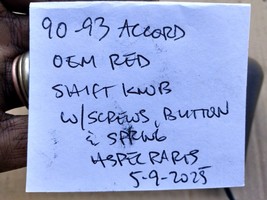 90-93 ACCORD
OEM RED
SHIFT KNOB
W/SCREWS, BUTTON
& SPRING
HSPECRARIS
5-9-2025